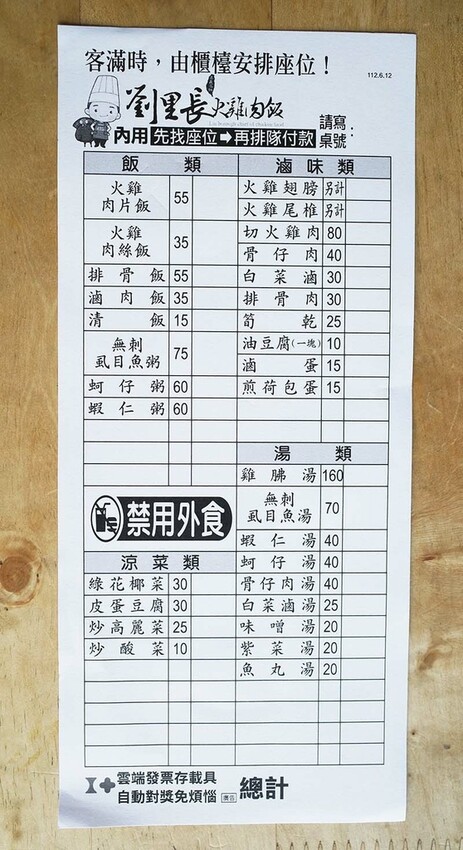 客滿時，由櫃檯安排座位！
112.6.12
劉里長火雞肉飯
內用 先找座位➡再排隊付款 請寫桌號：
飯類
火雞肉片飯 55
火雞肉絲飯 35
排骨飯 55
滷肉飯 35
清飯 15
無刺虱目魚粥 75
蚵仔粥 60
蝦仁粥 60
禁用外食
涼菜類
綠花椰菜 30
皮蛋豆腐 30
炒高麗菜 25
炒酸菜 10
滷味類
火雞翅膀 另計
火雞尾椎 另計
切火雞肉 80
骨仔肉 40
白菜滷 30
排骨肉 30
筍乾 25
油豆腐(一塊) 10
滷蛋 15
煎荷包蛋 15
湯類
雞胇湯 160
無刺虱目魚湯 70
蝦仁湯 40
蚵仔湯 40
骨仔肉湯 40
白菜滷湯 25
味噌湯 20
紫菜湯 20
魚丸湯 20
雲端發票存載具
自動對獎免煩惱 廣告
總計